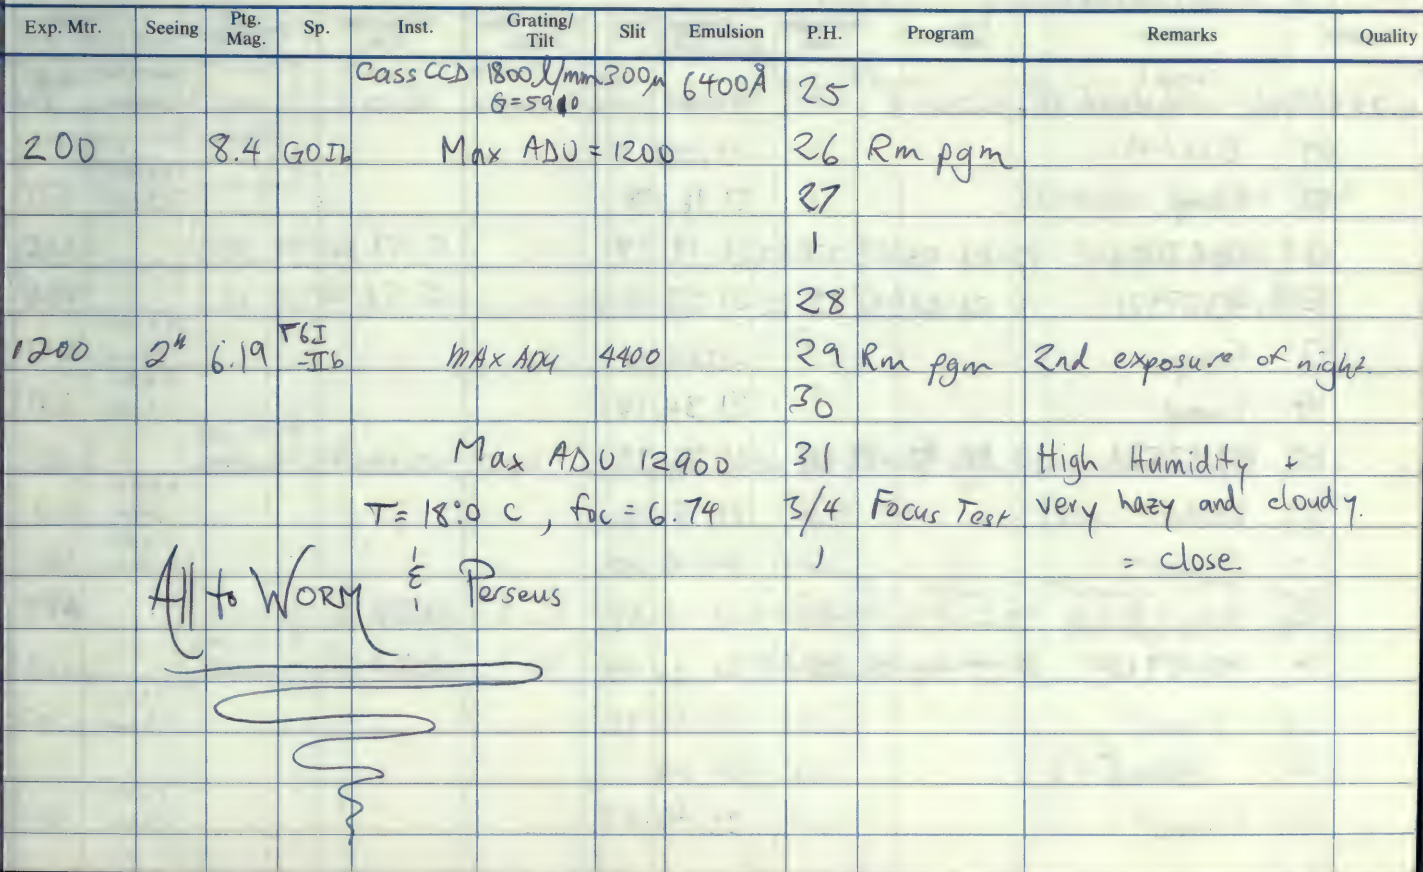 Exp. Mtr. Seeing Ptg. Mag. Sp. Inst. Grating/ Tilt Slit Emulsion P.H. Program Remarks Quality
Cass CCD 1800 l/mm 300μ 6400Å 25
G=5910
200 8.4 G0Ib Max ADU = 1200 26 Rm pgm
27
1
28
1200 2" 6.19 F6I-IIb MAX ADU 4400 29 Rm pgm 2nd exposure of night.
30
Max ADU 12900 31 High Humidity +
T= 18°.0 C, foc = 6.74 3/4 Focus Test very hazy and cloudy.
1 = close.
All to WORM & Perseus